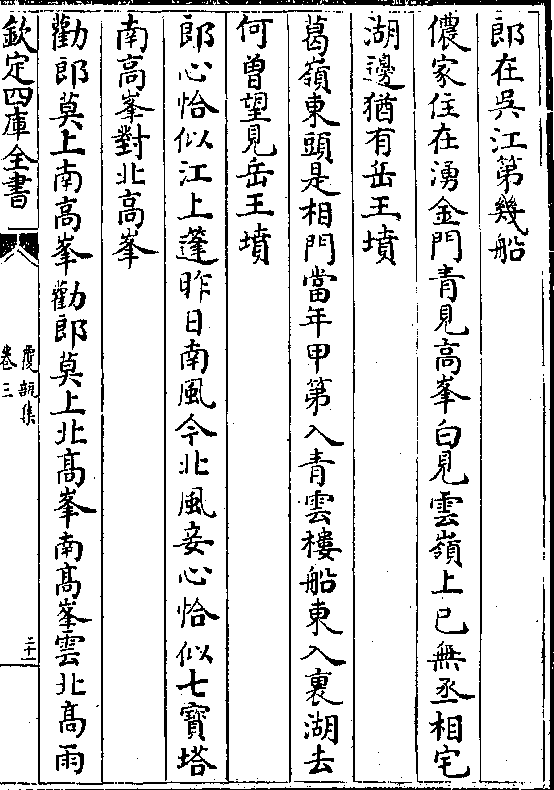 郎在吳江第幾船
儂家住在湧金門青見高峯白見雲嶺上已無丞相宅
湖邊猶有岳王墳
葛嶺東頭是相門當年甲第入青雲樓船東入裏湖去
何曽望見岳王墳
郎心恰似江上蓬昨日南風今北風妾心恰似七寶塔
南高峯對北高峯
勸郎莫上南高峯勸郎莫上北高峯南髙峯雲北髙雨
欽定四庫全書
覆瓿集
卷三
二十一